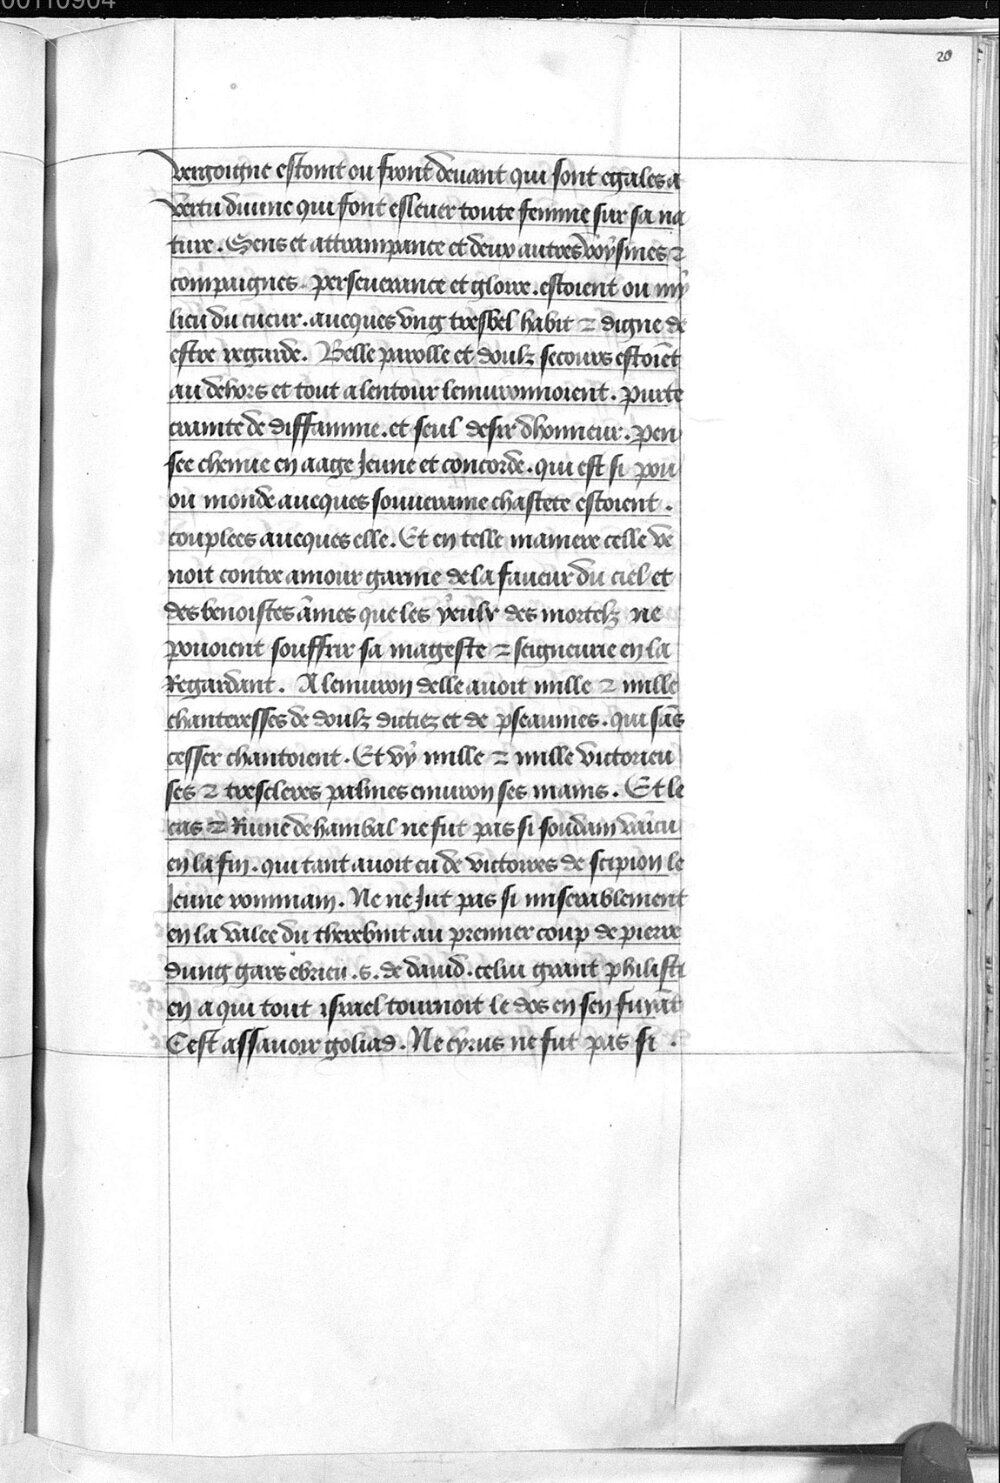 00110904
20
Vergoigne estoint ou front devant qui sont egales a
Vertu divine qui font eslever toute femme sur sa na
ture. Sens et attrampance et deux autres voysines ⁊
compaignes. perseverance et gloire. estoient ou my
lieu du cueur. aveques ung tresbel habit ⁊ digne de
estre regarde. Belle parolle et doulz secours estoiẽt
au dehors et tout alentour lenvironnoient. purte
crainte de diffamme. et seul desir dhonneur. pen
see chenue en aage Jeune et concorde. qui est si pou
ou monde aveques souveraine chastete estoient.
couplees aveques elle. Et en telle maniere celle ve
noit contre amour garnie de la faveur du ciel et
des benoistes ãmes que les yeulx des mortelz ne
povoient souffrir sa mageste ⁊ seigneurie en la
Regardant. A lenviron delle avoit mille ⁊ mille
chanteresses de doulz dictiez et de pseaumes. qui sãs
cesser chantoient. Et vy mille ⁊ mille victorieu
ses ⁊ trescleres palmes environ ses mains. Et le
cas ⁊ Ruine de hanibal ne fut pas si soudain vaĩcu
en la fin. qui tant avoit eu de victoires de scipion le
Jeune rommain. Ne ne Jut pas si miserablement
en la valee du therebint au premier coup de pierre
dung gars ebrieu .s. de david. celui grant philisti
en a qui tout israel tournoit le dos en sen fuyãt
Cest assavoir golias. Ne cyrus ne fut pas si .